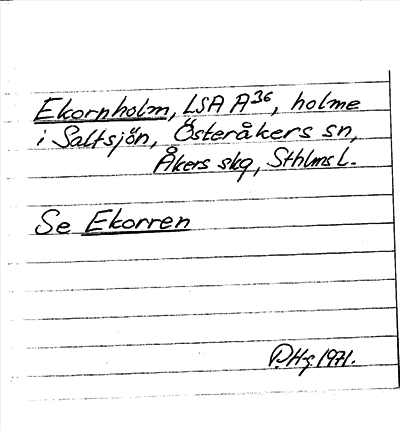 Ekornholm, LSA A36, holme
i Saltsjön, Österåkers sn,
Åkers skg, Sthlms L.
Se Ekorren
P.Hg. 1971.